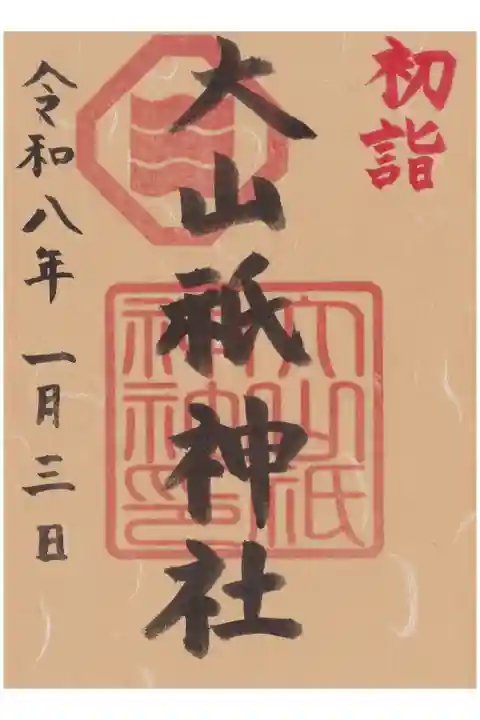 初詣
大山祇神社
大山祇
神社
神印
令和八年 一月三日